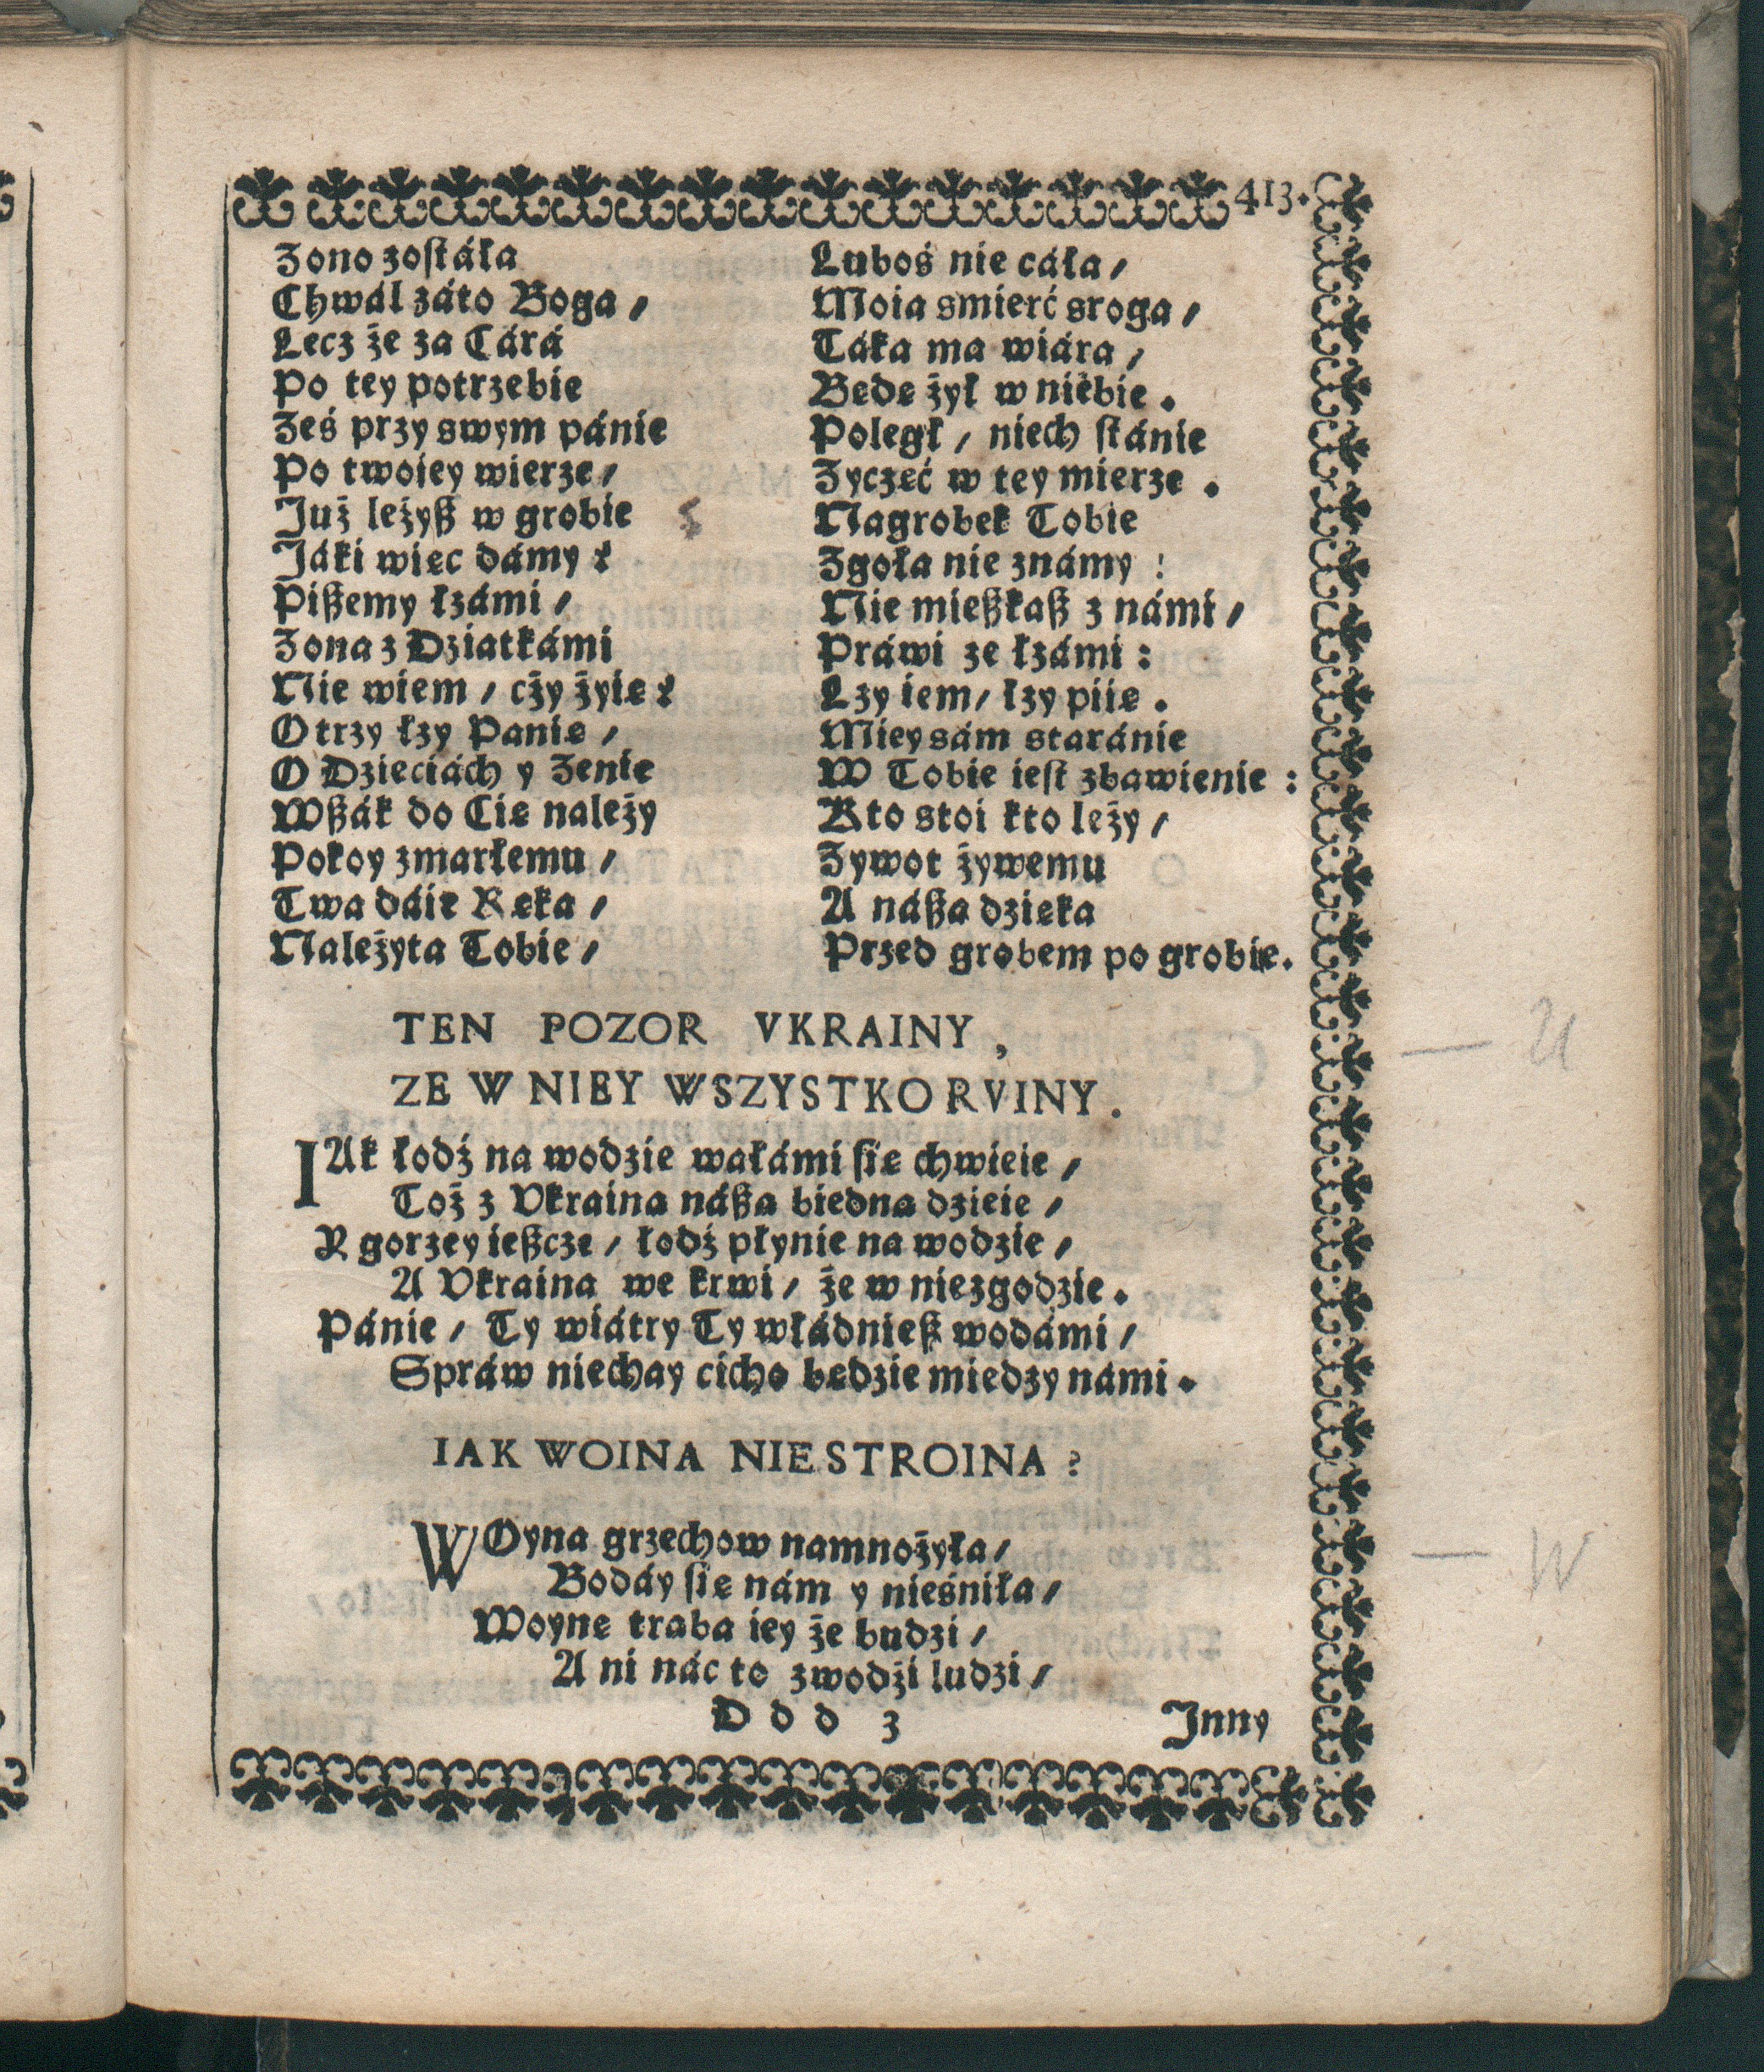 413.
Zono zostáłá Luboś nie cáła,
Chwal záto Boga, Moia smierć sroga,
Lecz że za Cárá Táka ma wiára,
Po tey potrzebie Bede żył w niebie.
Żeś przy swym pánie Poległ, niech stánie
Po twoiey wierze, Zyczęć w tey mierze.
Już leżyß w grobie Nagrobek Tobie
Jáki więc dámy? Zgoła nie známy!
Pißemy łzámi, Nie mießkaß z námi,
Zona z Dziatkámi Práwi ze łzámi:
Nie wiem, czy żyię? Lzy iem, łzy piię.
Otrzy łzy Panie, Miey sám staránie
O Dzieciách y Zenie W Tobie iest zbawienie:
Wßák do Cię należy Kto stoi kto leży,
Pokoy zmarłemu, Zywot żywemu
Twa dáie Ręka, A náßa dzięka
Należyta Tobie, Przed grobem po grobie.
TEN POZOR VKRAINY,
ZE W NIEY WSZYSTKO RVINY.
IAk łodź na wodzie wałámi się chwieie,
Toż z Vkraina náßa biedna dzieie,
Y gorzey ießcze, łodź płynie na wodzie,
A Vkraina we krwi, że w niezgodzie.
Pánie, Ty wiátry Ty władnieß wodámi,
Spráw niechay cicho będzie miedzy námi.
IAK WOINA NIESTROINA?
WOyna grzechow namnożyła,
Bodáy się nám y nieśniła,
Woynę traba iey że budzi,
A ni nác to zwodźi ludzi,
D d d 3 Jnny
U
W